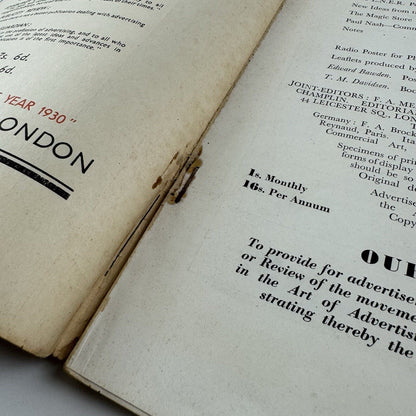 REVIEW.
publication dealing with advertising
profession of advertising, and to all who
of the latest ideas and advances in
is of the first importance."
7s. 6d.
6d.
YEAR 1930"
LONDON
New Ideas from
The Magic Story
Paul Nash—Comm
Notes
Radio Poster for Ph
Leaflets produced by
Edward Bawden.
T. M. Davidson.
JOINT-EDITORS: F. A. M
CHAMPLIN. EDITORIA
44 LEICESTER SQ., LON
Germany: F. A. Brock
Reynaud, Paris. Ita
Commercial Art,
Specimens of prin
forms of display
should be so
Original
Advertise
the
Copy
1s. Monthly
16s. Per Annum
OUR
To provide for advertise
or Review of the movemen
in the Art of Advertis
strating thereby the